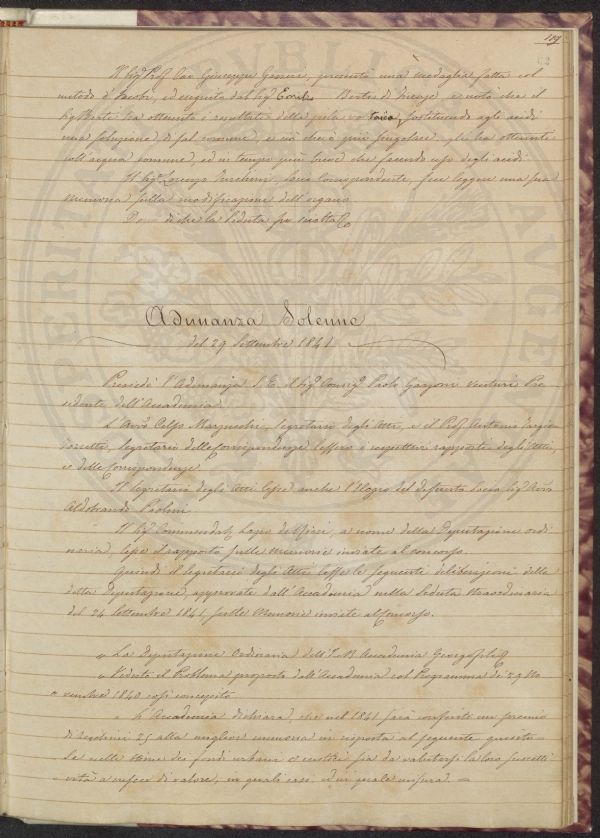 159
62
Il Sig.r Prof. Cav. Giuseppe Gazzeri, presentò una medaglia fatta col
metodo di Jacobi, ed eseguita dal Sig.r di Arezzo, e notò che il
Sig.r ha ottenuto i resultati della pila sostituendo agli acidi
una soluzione di sal comune, e ciò che è più singolare, gli ha ottenuti
coll'acqua comune, ed in tempo più breve che facendo uso degli acidi.
Il Sig.r Lorenzo Turchini, Socio Corrispondente, fece leggere una sua
Memoria sulla modificazione dell'organo.
di che la Seduta fu sciolta
Adunanza Solenne
del 29 Settembre 1841
Presiedè l'Adunanza S. E. il Sig.r Consig.r Paolo Garzoni Venturi Pre
sidente dell'Accademia.
L'Avv.o Celso Marzucchi, Segretario degli Atti, e il Prof. Antonio Targioni
Tozzetti, Segretario delle Corrispondenze lessero i respettivi rapporti degli Atti,
e delle Corrispondenze.
Il Segretario degli Atti lesse anche l'Elogio del defunto Socio Sig.r Avv.o
Aldobrando Paolini.
Il Sig.r Commendat.e Lapo de' Ricci, a nome della Deputazione ordi
naria, lesse il rapporto sulle Memorie inviate al concorso.
Quindi il Segretario degli Atti lesse le seguenti deliberazioni della
detta Deputazione, approvate dall'Accademia nella Seduta straordinaria
del 24 Settembre 1841, sulle Memorie inviate al Concorso.
" La Deputazione Ordinaria dell'I. e R. Accademia Georgofili
" Veduto il Problema proposto dall'Accademia col Programma de' 29 No
" vembre 1840 così concepito
" L'Accademia dichiara, che nel 1841 sarà conferito un premio
di Zecchini 25 alla migliore memoria in risposta al seguente quesito =
Se nelle stime dei fondi urbani o rustici sia da valutarsi la loro suscetti
vità a crescer di valore, in quali casi, ed in quale misura. =